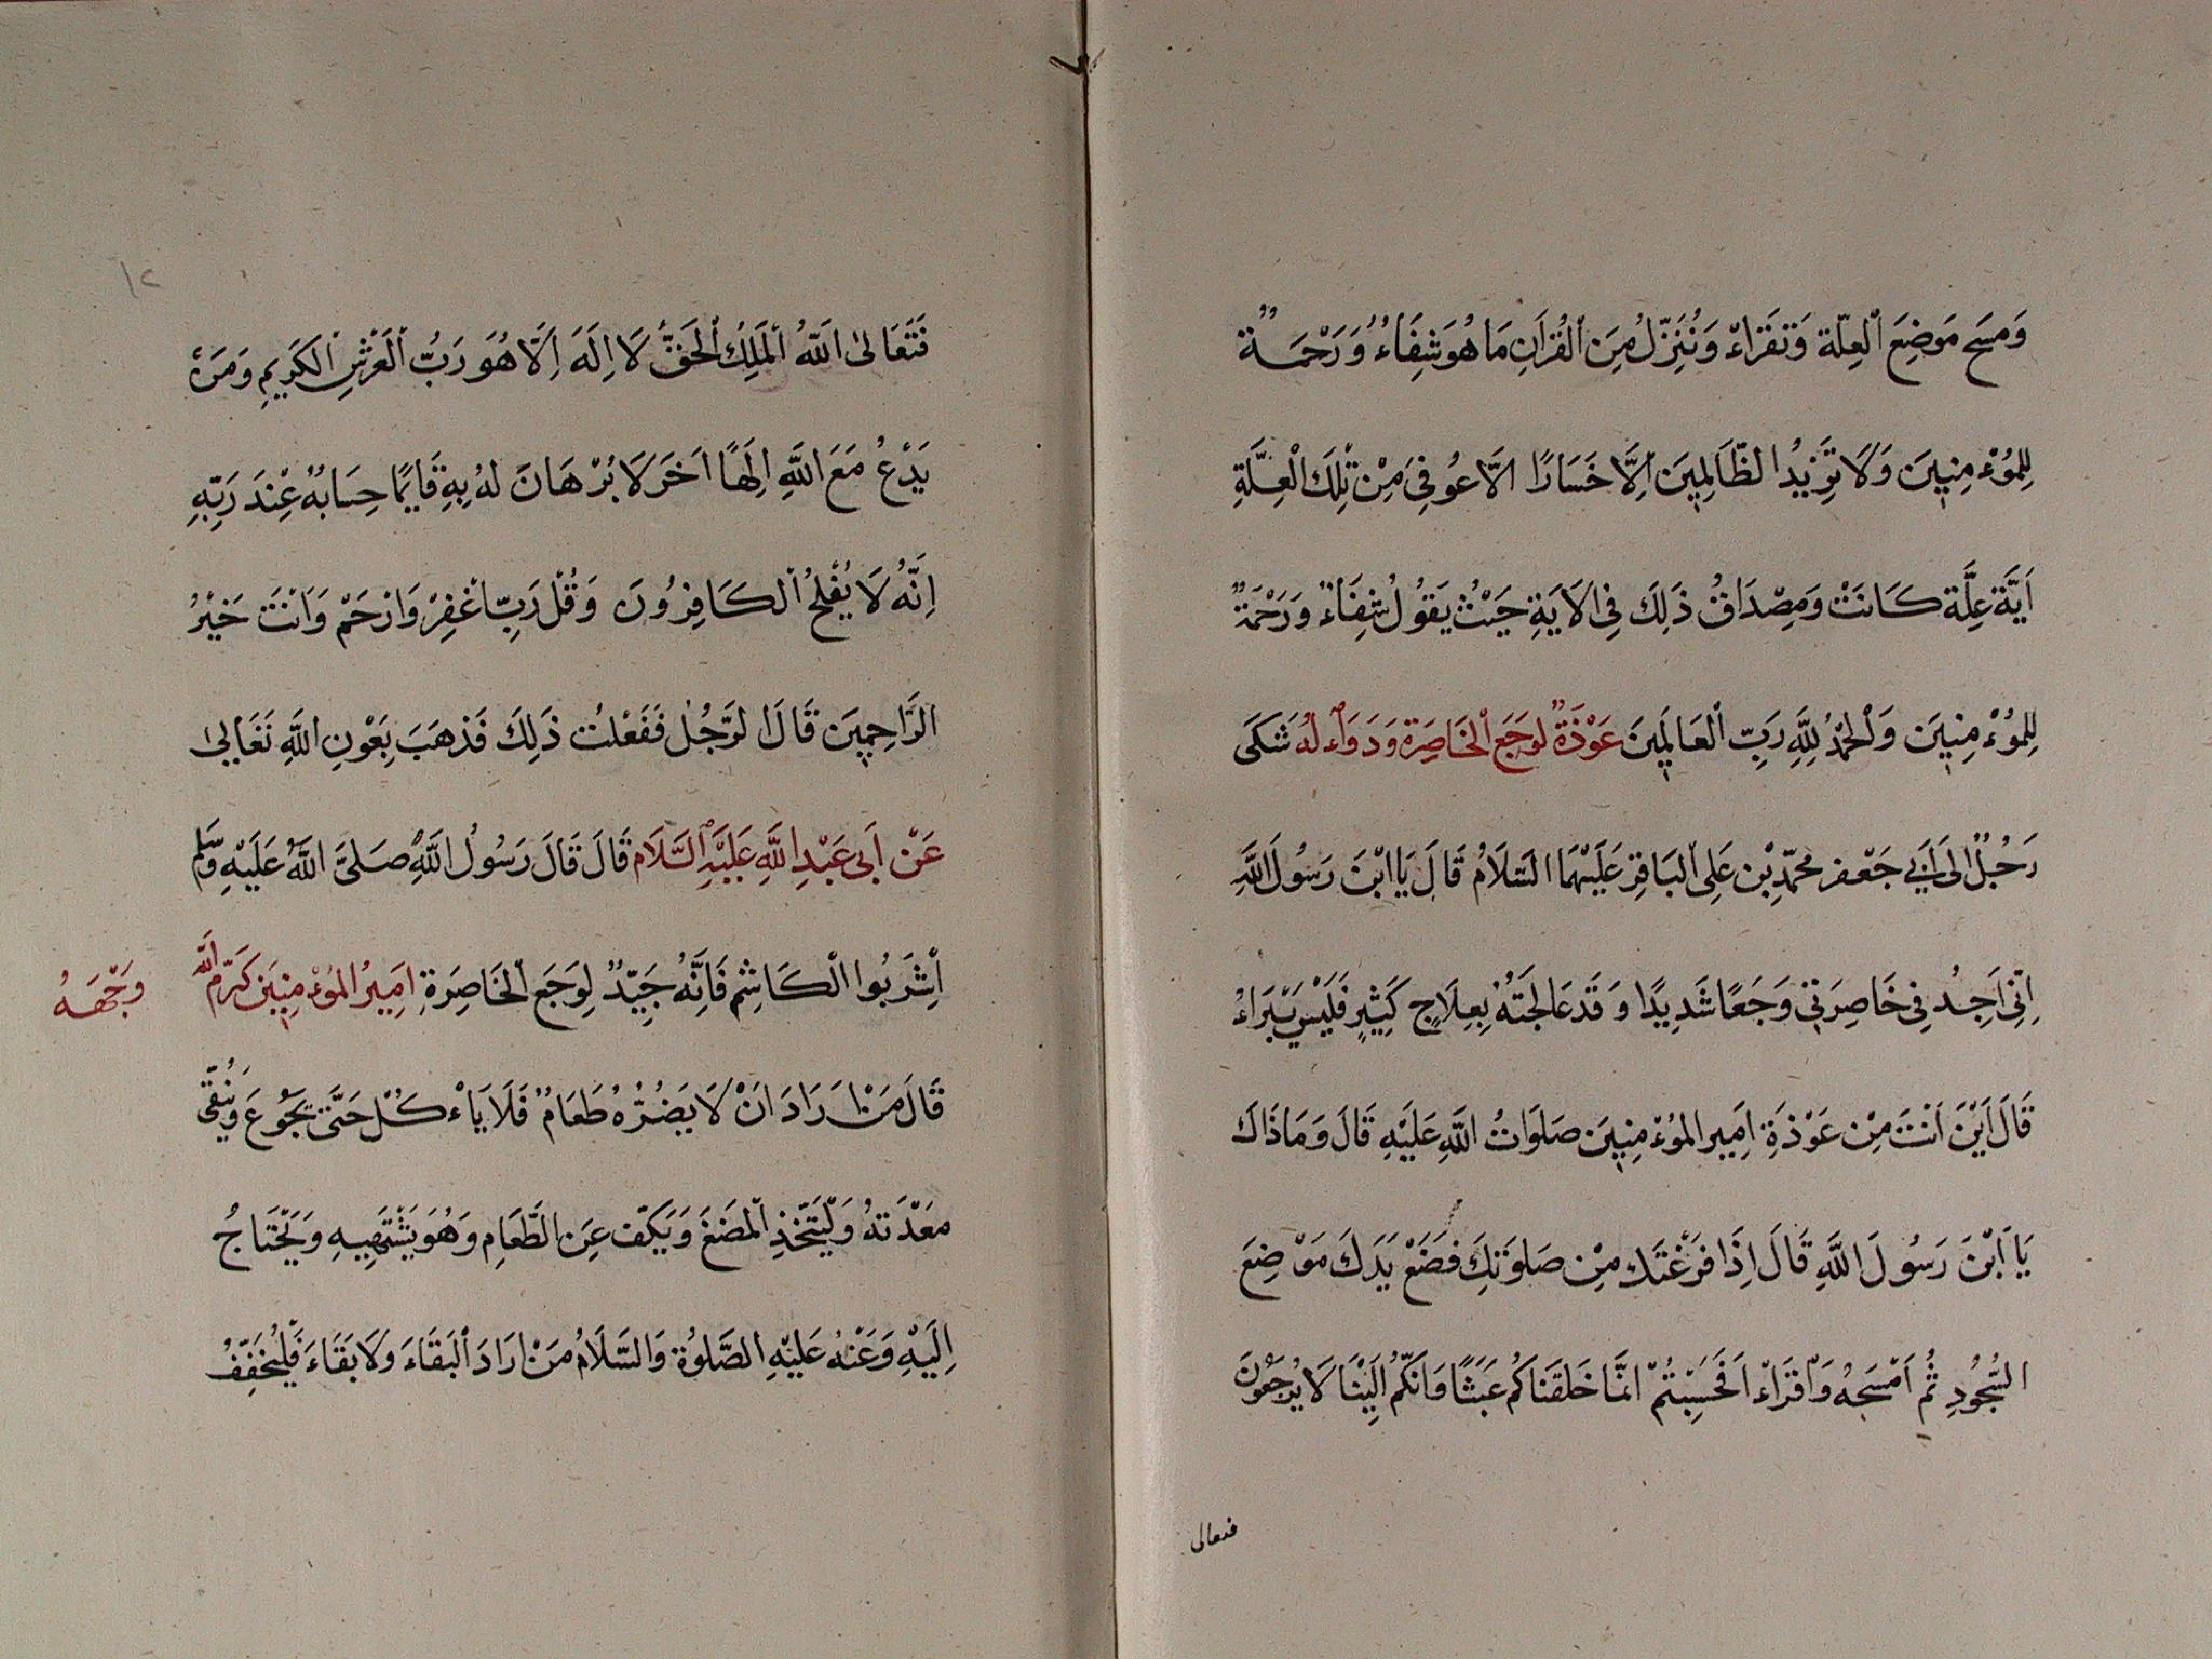 وَمسَح مَوضِعَ اْلعِلّة وَتَقرَاءْ وَنُنَزّلُ مِنَ اْلقُراَنِ مَا هُوَ شِفَاءُ وَرَحْمَـة
لِلمُؤْمِنِينَ وَلَا تَزِيدُ الظّالِمِينَ اِلَّا خَسَارًا الَّا عُوفِىَ مِنْ تِلْكَ الْعِلَّةِ
اَيَّة عِلَّة كَانَتْ وَمِصْدَاقُ ذَلِكَ فِى الَايَةِ حَيْثُ يَقُولُ شِفَاءٌ وَرَحْمَةٌ
لِلمُؤْمِنِينَ وَاْلحَمْدُ لِلّهِ رَبِّ اْلعَالَمِينَ عَوْذَةٌ لِوَجَعِ اْلخَاصِرَة وَدَوَآء لَهُ شَكَى
رَجُلٌ اِلىَ اَبِي جَعْفر محمّد بْن عَلِى اْلبَاقِر عَلَيْهِمَا السَلَامُ قَالَ يَا ابْنَ رَسُولَ اللَّهِ
اِنِّى اَجِدُ فِى خَاصِرَتِى وَجَعًا شَدِيدًا وَقَد عَالَجتَهُ بِعِلَاجٍ كَثِيْرٍ فَلَيْسَ يَبْرَاءُ
قَالَ اَيْنَ اَنْتَ مِنْ عَوْذَةِ اَمِير المؤْمِنِينَ صَلَوَاتُ اللَّهِ عَلَيْهِ قَالَ وَمَا ذَاكَ
يَا اَبْنَ رَسُولَ اللَّهِ قَالَ اِذَا فَرَغْتَ مِنْ صَلوَتِكَ فَضَعْ يَدَكَ مَوْضِعَ
السُّجُودِ ثُم اَمْسَحهُ وَاقْرَاءْ اَفَحَسِبْتُمْ انَّمَا خَلَقنَاكُم عَبَثًا وَاَنَّكُم اِلَيْنَا لَا يُرجَعُونَ
فتعالى
١٢
فَتَعَالىٰ اَللّهُ اْلمَلِكُ اْلحَقُّ لَا اِلَهَ اِلَّا هُوَ رَبُّ اْلعَرْشِ الكَرِيمِ وَمَنْ
يَدْعُ مَعَ اللَّهِ اِلَهًا اَخَرَ لَا بُرْهَانَ لَهُ بِهِ فَاِنمَّا حِسَابُهُ عِنْدَ رَبِّهِ
اِنَّهُ لَا يُفْلِحُ اْلكَافِرُونَ وَقُلْ رَبِّ اغْفِرْ وَارْحَمْ وَاَنْتَ خَيْرُ
الرَّاحِمِينَ قَالَ الرَّجُل فَفَعْلتُ ذَلِكَ فَذهَبَ بِعَوْنِ اللَّهِ تَعَالىٰ
عَنْ اَبى عَبْدِ اللَّهِ عَلَيْهِ السَّلَام قَالَ قَالَ رَسُولُ اللَّهِ صَلىَّ اللَّهُ عَلَيْهِ وَسَلَّم
اَشِرَبُوا الْكَاشِم فَاِنَّهُ جَيِّدٌ لِوَجَعِ اْلخَاصِرَةِ اَمِيرُ المُؤْمِنِينَ كَرّم اللّه وَجْهَهُ
قَالَ مَنْ اَرَادَ اَنْ لَا يَضُرُّهُ طَعَامٌ فَلَا يَاْكُلْ حَتَّى تجَوُعَ وَيُنَقَّى
معَدَتهُ وَلْيَتَّخِذِ اْلمَضَغَ وَيَكفّ عَنِ الطَّعَامِ وَهُوَ يَشْتَهِيهِ وَيَحْتَاجُ
اِلَيْهِ وَعَنْهُ عَلَيْهِ الصَّلوٰةُ وَالسَّلَامُ مَنْ اَرَادَ اْلبَقَاءَ وَلَا بَقَاءَ فَلْيُخَفِّفْ